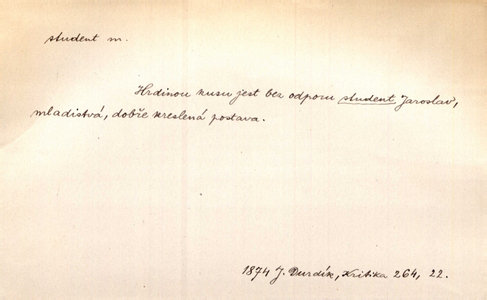 student m.
Hrdinou kusu jest bez odporu student Jaroslav,
mladistvá, dobře kreslená postava.
1874 J. Durdík, Kritika 264, 22.